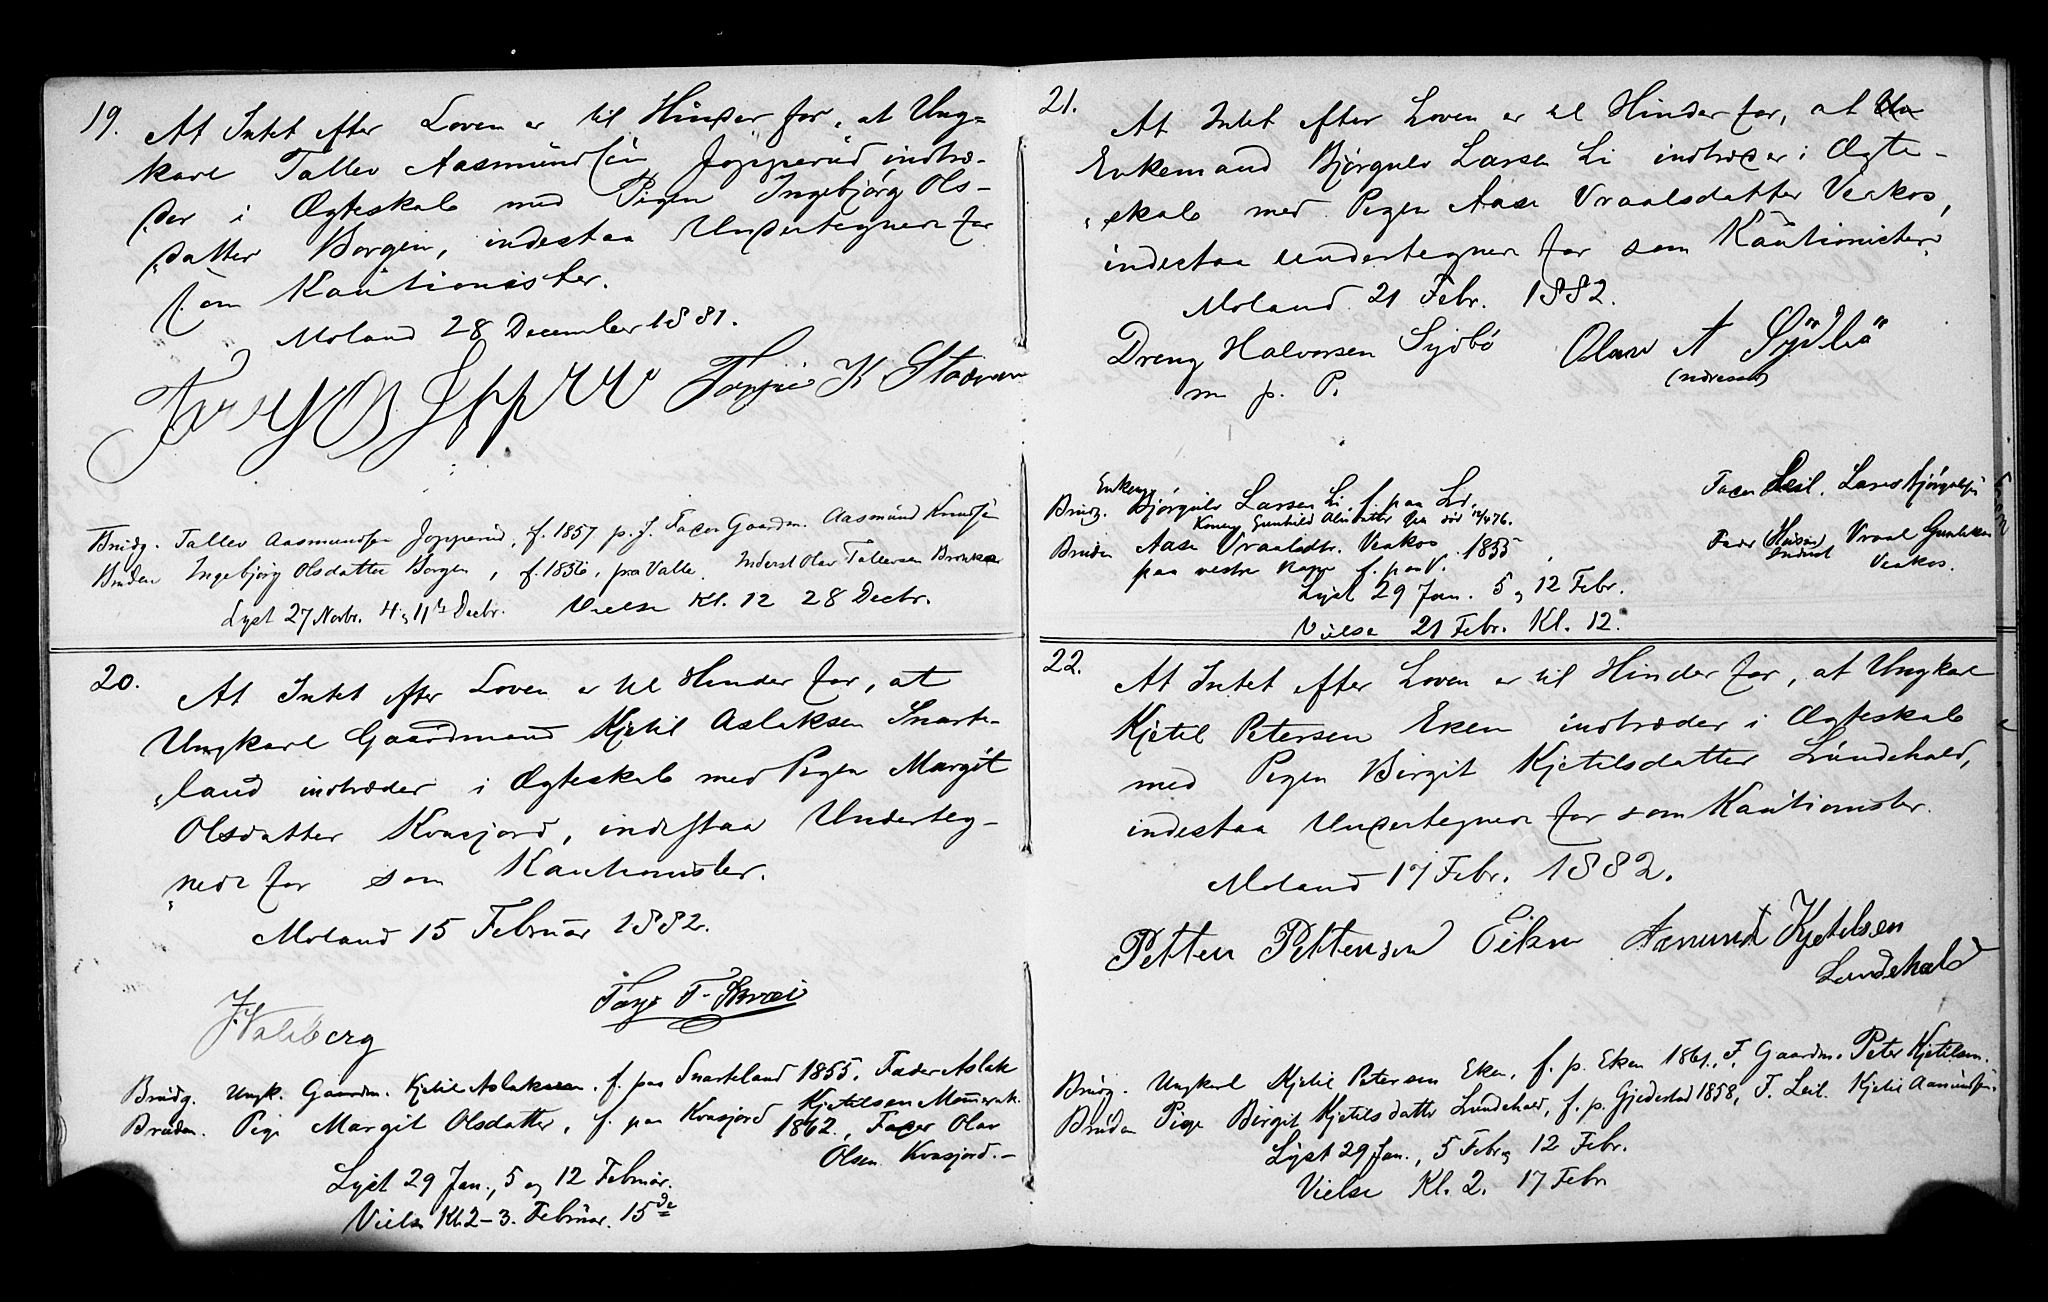 19.
At Intet efter Loven er til Hinder for, at Ung-
karl Tallev Aasmundsen Jopperud indtræ-
der i Ægteskab med Pigen Ingebjørg Ols-
"datter Borgen, indestaa Undertegnede for
som Kautionister.
Moland 28 December 1881.
K Staavern
Brudg. Tallev Aasmundsen Jopperud, f. 1857 p. J. Fader Gaardm. Aasmund Knudsen
Bruden Ingebjørg Olsdatter Borgen, f. 1856, paa Valle. Inderst Olav Tallevsen
Lyst 27 Novbr. 4 og 11te Decbr. Vielse Kl. 12 28 Decbr.
20.
At Intet efter Loven er til Hinder for, at
Ungkarl Gaardmand Kjetil Aslaksen Snarte-
"land indtræder i Ægteskab med Pigen Margit
Olsdatter Kvasjord, indestaa Underteg-
"nede for som Kautionister.
Moland 15 Februar 1882.
J. Valberg
Brudg. Ungk. Gaardm. Kjetil Aslaksen. f. paa Snarteland 1855. Fader Aslak
Kjetilsen
Bruden. Pige Margit Olsdatter, f. paa Kvasjord 1862., Fader Olav
Olsen Kvasjord.-
Lyst 29 Jan., 5 og 12 Februar.
Vielse Kl. 2-3. Februar. 15de
21.
At Intet efter Loven er til Hinder for, at
Enkemand Bjørgulv Larsen Li indtræder i Ægte-
"skab med Pigen Aase Vraalsdatter Veakos,
indestaa undertegnede for som Kautionister.
Moland 21 Febr. 1882.
Dreng Halvorsen Sydbö Olav A Sydbö
m. p. P.
Enkem.
Brudg. Bjørgulv Larsen Li, f. paa Li. Fader Leil. Lars Bjørgulvsen
Gunhild død
Bruden Aase Vraalsdtr. Veakos 1855, Fader Vraal Gunleksen
Veakos.
paa vestre f. paa V.
Lyst 29 Jan. 5 og 12 Febr.
Vielse 21 Febr. Kl. 12.
22.
At Intet efter Loven er til Hinder for, at Ungkarl
Kjetil Petersen Eken indtræder i Ægteskab
med Pigen Birgit Kjetilsdatter Lundehald,
indestaa Undertegnede for som Kautionister.
Moland 17 Febr. 1882.
Petter Pettersen Eiken Asmund Kjetelsen
Lundehald
Brudg. Ungkarl Kjetil Petersen Eken, f. p. Eken 1861., F. Gaardm. Peter Kjetilsen.
Bruden Pige Birgit Kjetilsdatter Lundehald, f. p. Gjedestad 1858, F. Leil. Kjetil Aamundsen.
Lyst 29 Jan., 5 Febr. og 12 Febr.
Vielse Kl. 2. 17 Febr